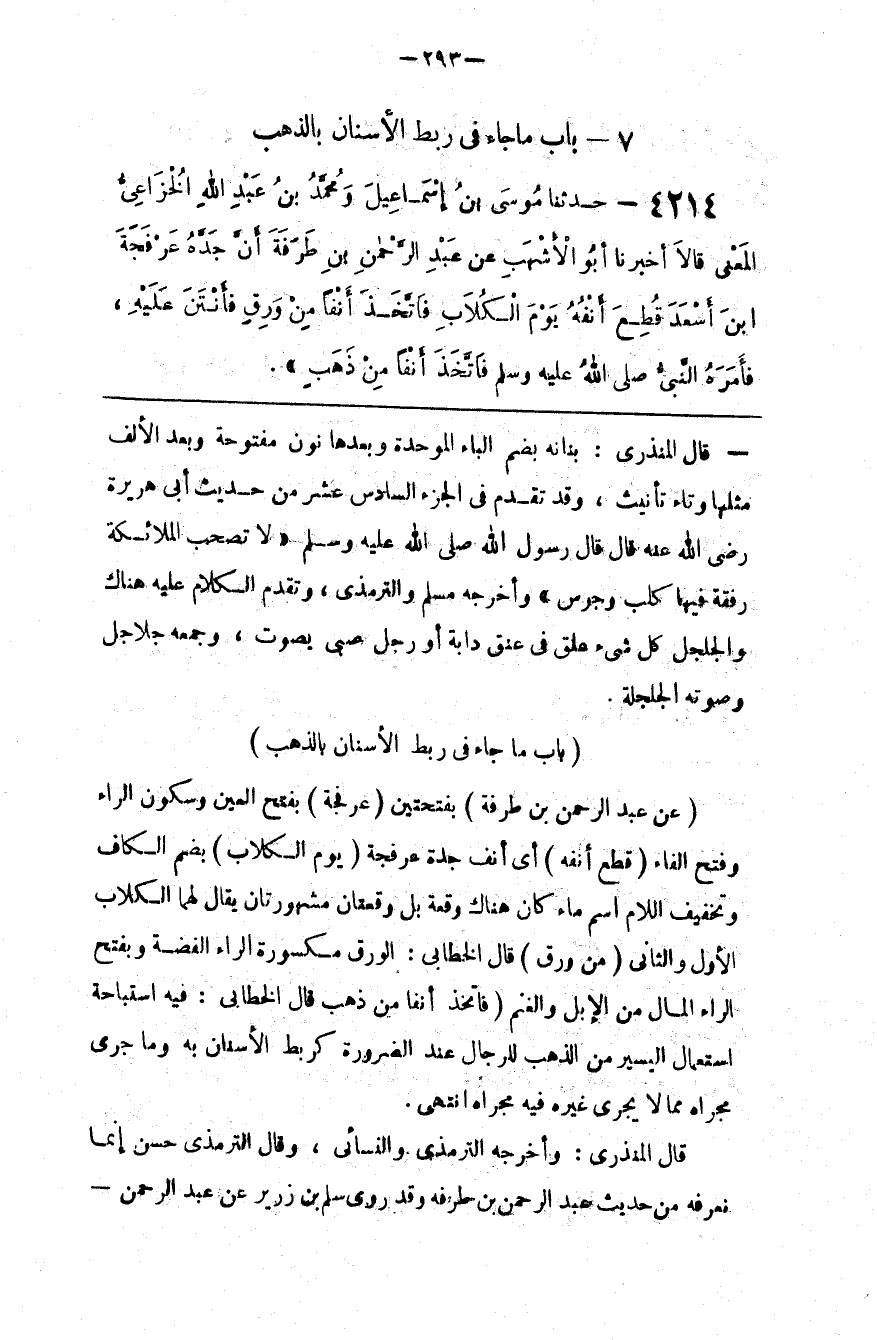 — ٢٩٣ —
٧ – باب ماجاء فى ربط الأسنان بالذهب
٤٢١٤ – حدثنا مُوسَى بنُ إِسْمَاعِيلَ وَمُحمَّدُ بنُ عَبْدِ اللهِ الْخُزَاعِىُّ
المَعْنٰى قالاَ أخبرنا أبُو الْأَشْهَبِ عن عَبْدِ الرَّحْمٰنِ بنِ طَرَفَةَ أَنَّ جَدَّهُ عَرْفَجَةَ
ابنَ أَسْعَدَ قُطِعَ أَنْفُهُ يَوْمَ الْكُلاَبِ فَاتَّخَذَ أَنْفًا مِنْ وَرِقٍ فأَنْتَنَ عَلَيْهِ ،
فأَمَرَهُ النَّبىُّ صلى اللهُ عليه وسلم فَاتَّخَذَ أَنْفًا مِنْ ذَهَبٍ » .
— قال المنذرى : بنانه بضم الباء الموحدة وبعدها نون مفتوحة وبعد الألف
مثلها وتاء تأنيث ، وقد تقدم فى الجزء السادس عشر من حديث أبى هريرة
رضى الله عنه قال قال رسول الله صلى الله عليه وسلم « لا تصحب الملائكة
رفقة فيها كلب وجرس » وأخرجه مسلم والترمذى ، وتقدم الكلام عليه هناك
والجلجل كل شىء علق فى عنق دابة أو رجل صبى يصوت ، وجمعه جلاجل
وصوته الجلجلة .
( باب ما جاء فى ربط الأسنان بالذهب )
( عن عبد الرحمن بن طرفة ) بفتحتين ( عرفجة ) بفتح العين وسكون الراء
وفتح الفاء ( قطع أنفه ) أى أنف جدة عرفجة ( يوم الكلاب ) بضم الكاف
وتخفيف اللام اسم ماء كان هناك وقعة بل وقعتان مشهورتان يقال لهما الكلاب
الأول والثانى ( من ورق ) قال الخطابى : الورق مكسورة الراء الفضة وبفتح
الراء المال من الإبل والغنم ( فاتخذ أنفا من ذهب قال الخطابى : فيه استباحة
استعمال اليسير من الذهب للرجال عند الضرورة كربط الأسنان به وما جرى
مجراه مما لا يجرى غيره فيه مجراه انتهى .
قال المنذرى : وأخرجه الترمذى والنسائى ، وقال الترمذى حسن إنما
نعرفه من حديث عبد الرحمن بن طرفه وقد روى سلم بن زرير عن عبد الرحمن —